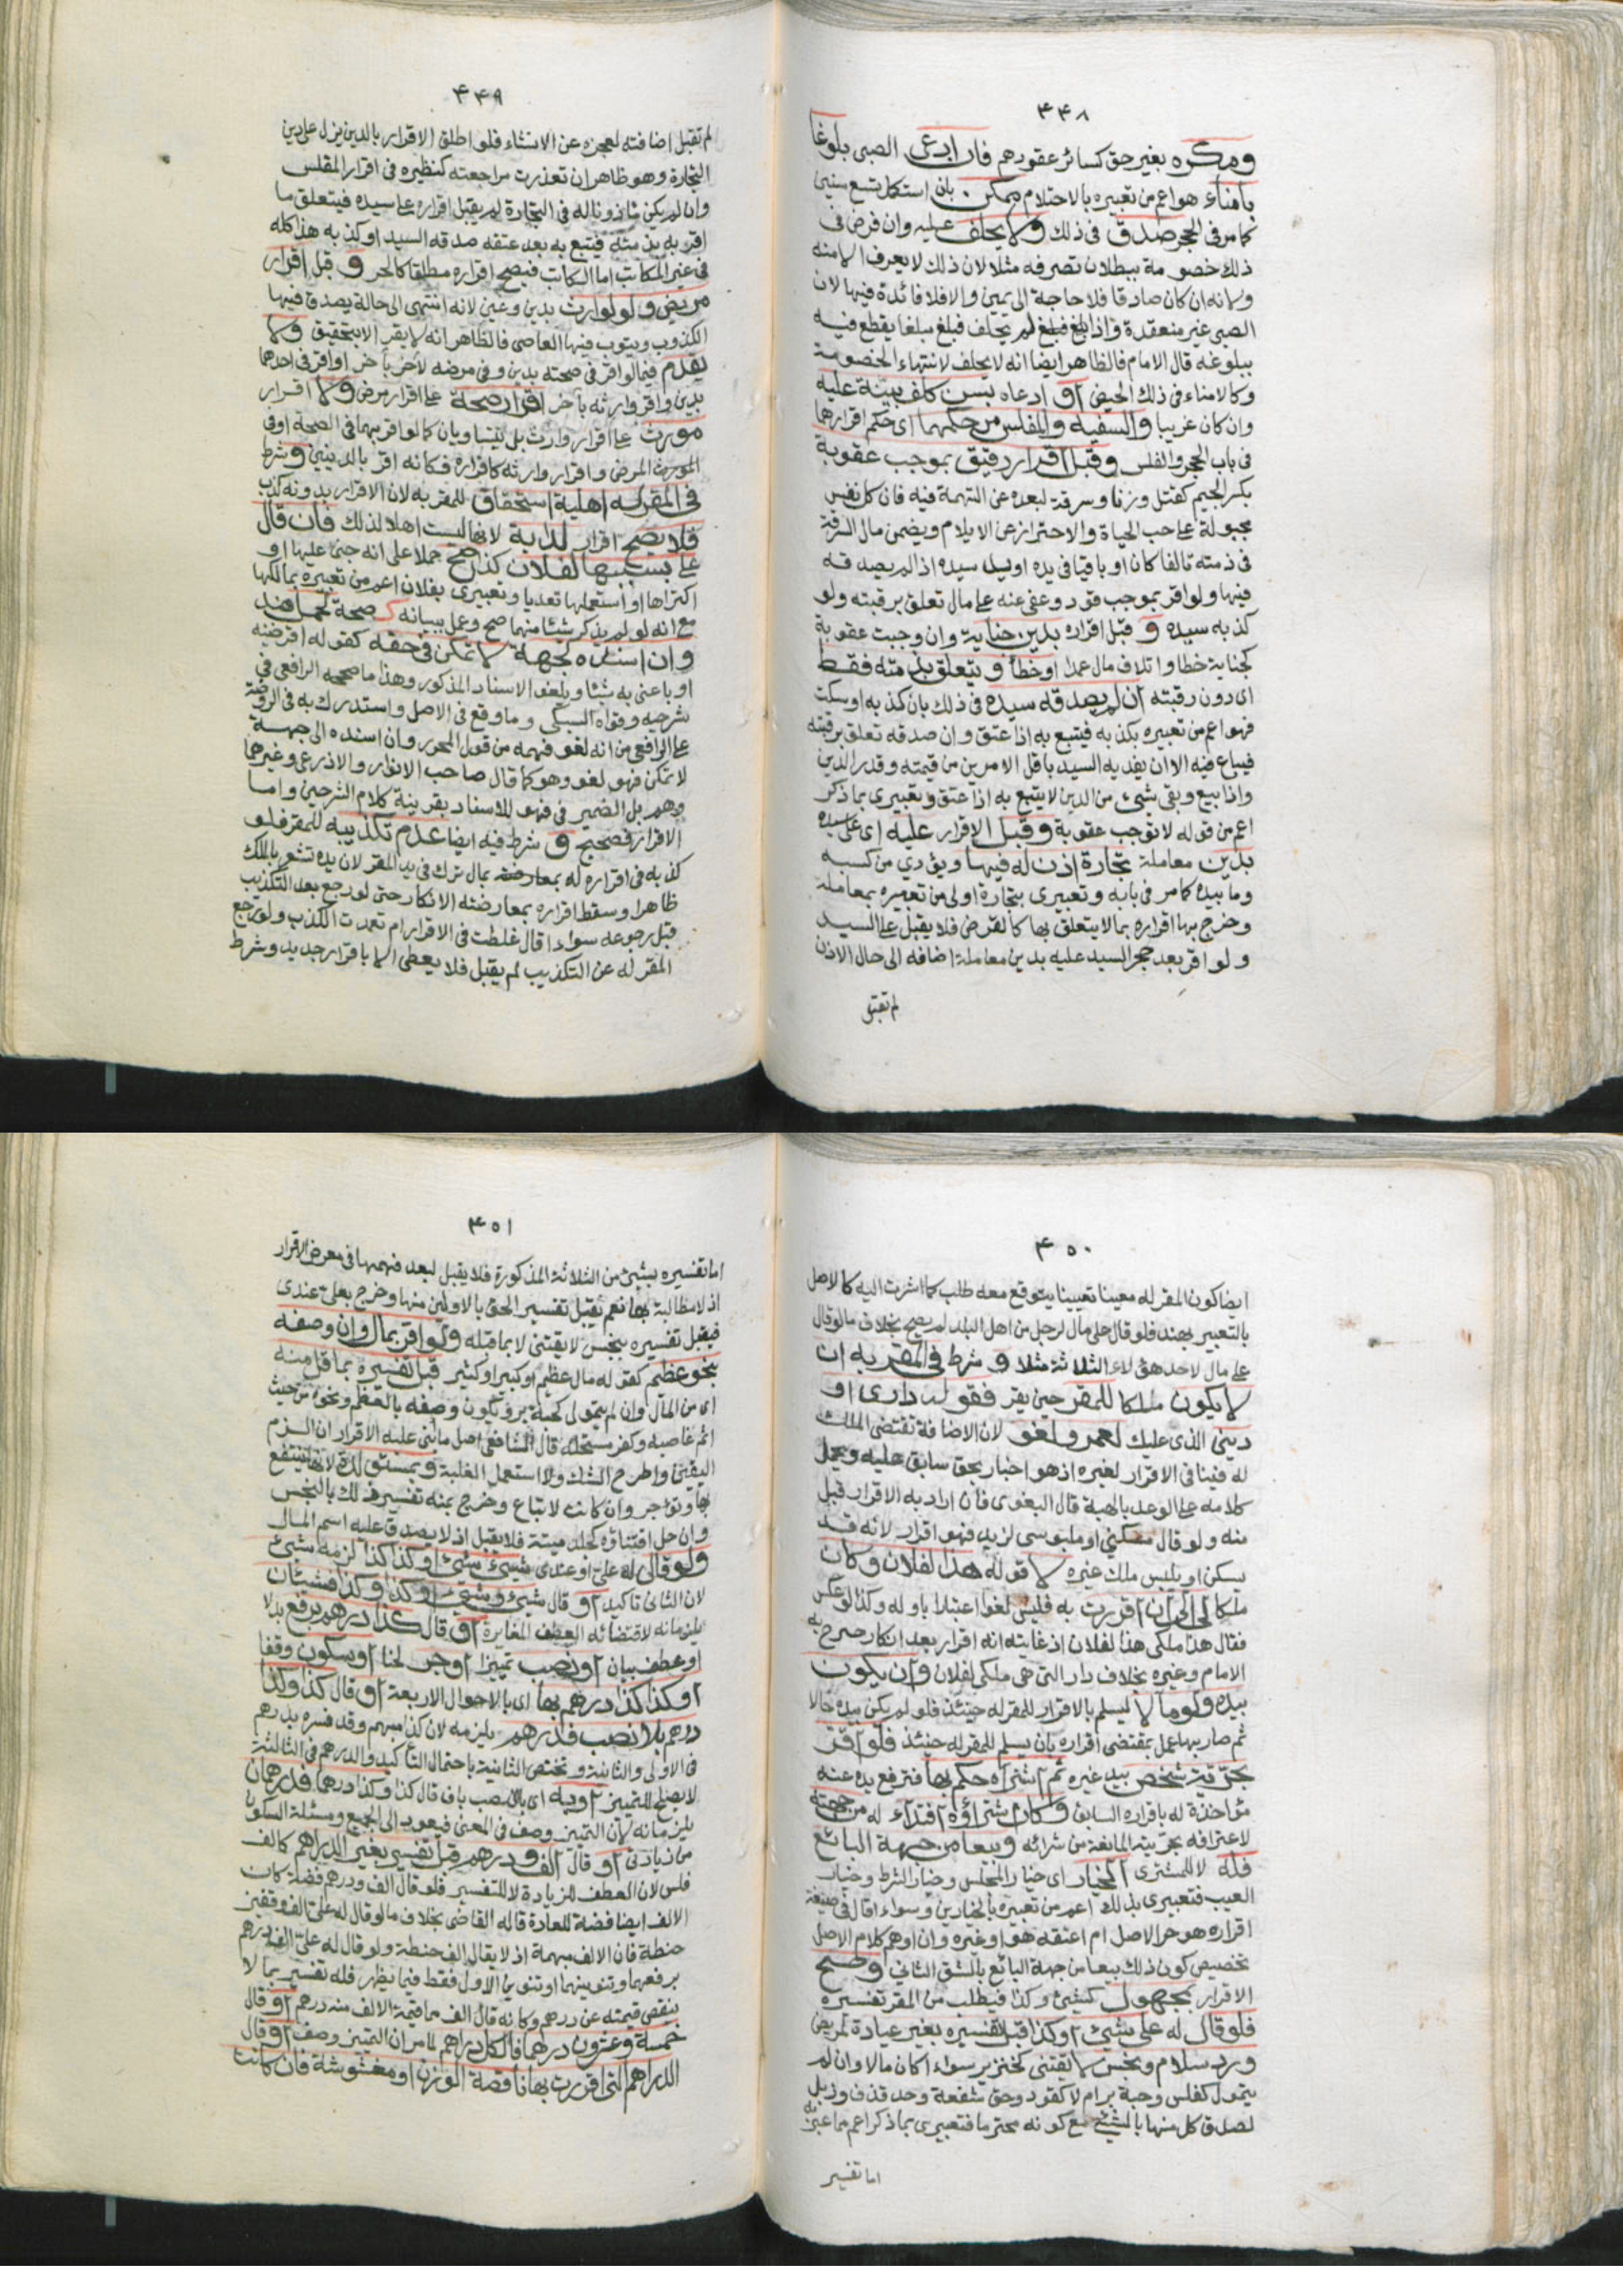 ٤٤٨
ومكره بغير حق كسائر عقودهم فان ادعى الصبى بلوغا
بامناء هو اعم من تعبيره بالاحتلام ممكن بان استكمل تسع سنين
كما مر فى الحجر صدق فى ذلك ولا يحلف عليه وان فرض فى
ذلك خصومة ببطلان تصرفه مثلا لان ذلك لا يعرف الا منه
ولانه ان كان صادقا فلا حاجة الى يمين والا فلا فائدة فيها لان
الصبى غير منعقدة واذا بلغ فبلغ لم يحلف فبلغ مبلغا يقطع فيه
ببلوغه قال الامام فالظاهر ايضا انه لا يحلف لانتهاء الخصومة
وكالامناء فى ذلك الحيض او ادعاه بسن كلف ببينة عليه
وان كان غريبا والسفيه والمفلس مر حكمهما اى حكم اقرارهما
فى باب الحجر والفلس وقبل اقرار رقيق بموجب عقوبة
بكسر الجيم كقتل وزنا وسرقة لبعده عن التهمة فيه فان كل نفس
مجبولة على حب الحياة والاحتراز عن الايلام ويضمن مال السرقة
فى ذمته تالفا كان او باقيا فى يده او يد سيده اذا لم يصدقه
فيها ولو اقر بموجب قود وعفى عنه على مال تعلق برقبته ولو
كذبه سيده و قبل اقراره بدين جناية وان وجبت عقوبة
كجناية خطا واتلاف مال عمدا او خطأ ويتعلق بذمته فقط
اى دون رقبته ان لم يصدقه سيده فى ذلك بان كذبه او سكت
فهو اعم من تعبيره بكذبه فيتبع به اذا عتق وان صدقه تعلق برقبته
فيباع فيه الا ان يفديه السيد باقل الامرين من قيمته وقدر الدين
واذا بيع وبقى شئ من الدين لا يتبع به اذا عتق وتعبيرى بما ذكر
اعم من قوله لا توجب عقوبة وقبل الاقرار عليه اى على سيده
بدين معاملة تجارة اذن له فيها ويؤدي من كسبه
وما بيده كما مر فى بابه وتعبيرى بتجارة اولى من تعبيره بمعاملة
وخرج بها اقراره بما لا يتعلق بها كالقرض فلا يقبل على السيد
ولو اقر بعد حجر السيد عليه بدين معاملة اضافه الى حال الاذن
لم تقبل
٤٤٩
لم تقبل اضافته لعجزه عن الانشاء فلو اطلق الاقرار بالدين نزل على دين
التجارة وهو ظاهر ان تعذرت مراجعته كنظيره فى اقرار المفلس
وان لم يكن ماذونا له فى التجارة لم يقبل اقراره على سيده فيتعلق ما
اقر به بذمته فيتبع به بعد عتقه صدقه السيد او كذبه هذا كله
فى غير المكاتب اما المكاتب فيصح اقراره مطلقا كالحر و قبل اقرار
مريض ولو لوارث بدين وعين لانه انتهى الى حالة يصدق فيها
الكذوب ويتوب فيها العاصى فالظاهر انه لا يقر الا بتحقيق ولا
يقدم فيما لو اقر فى صحته بدين وفى مرضه لآخر بآخر او اقر فى احدهما
بدين واقر وارثه بآخر اقرار صحة على اقرار مرض ولا اقرار
مورث على اقرار وارث بل يتساويان كما لو اقر بهما فى الصحة او فى
المرض واقرار وارثه كاقراره فكانه اقر بالدينين وشرط
فى المقر له اهلية استحقاق للمقر به لان الاقرار بدونه كذب
فلا يصح اقرار لدابة لانها ليست اهلا لذلك فان قال
على بسببها لفلان كذا صح حملا على انه جنى عليها او
اكتراها او استعملها تعديا وتعبيرى بفلان اعم من تعبيره بمالكها
مع انه لو لم يذكر شئا منهما صح وعمل ببيانه كـ صحة لحمل هند
وان اسنده لجهة لا تمكن فى حقه كقوله اقرضنيه
او باعنى به شيئا ويلغو الاسناد المذكور وهذا ما صححه الرافعى فى
شرحيه وقواه السبكى وما وقع فى الاصل واستدرك به فى الروضة
على الرافعى من انه لغو فهمه من قول المحرر وان اسنده الى جهة
لا تمكن فهو لغو وهو كما قال صاحب الانوار والاذرعى وغيرهما
وهم بل الضمير فى فهو للاسناد بقرينة كلام الشرحين واما
الاقرار فصحيح و شرط فيه ايضا عدم تكذيبه للمقر فلو
كذبه فى اقراره له بمال ترك فى يد المقر لان يده تشعر بالملك
ظاهرا وسقط اقراره بمعارضته الانكار حتى لو رجع بعد التكذيب
قبل رجوعه سواء اقال غلطت فى الاقرار ام تعمدت الكذب ولو رجع
المقر له عن التكذيب لم يقبل فلا يعطى الا باقرار جديد وشرط
٤٥٠
ايضا كون المقر له معينا تعيينا يتوقع معه طلب كما اشرت اليه كالاصل
بالتعبير بهند فلو قال على مال لرجل من اهل البلد لم يصح بخلاف ما لو قال
على مال لاحد هؤلاء الثلاثة مثلا و شرط فى المقر به ان
لا يكون ملكا للمقر حين يقر فقوله دارى او
دينى الذى عليك لعمرو لغو لان الاضافة تقتضى الملك
له فينافى الاقرار لغيره اذ هو اخبار بحق سابق عليه ويحمل
كلامه على الوعد بالهبة قال البغوى فان اراد به الاقرار قبل
منه ولو قال مسكنى او ملبوسى لزيد فهو اقرار لانه قد
يسكن او يلبس ملك غيره لا قوله هذا لفلان وكان
ملكا لى الى ان اقررت به فليس لغوا اعتبارا باوله وكذا لو عكس
فقال هذا ملكى هذا لفلان اذ غايته انه اقرار بعد انكار صرح به
الامام وغيره بخلاف دارى التى هى ملكى لفلان وان يكون
بيده ولو مآلا ليسلم بالاقرار للمقر له حينئذ فلو لم يكن بيده حالا
ثم صار بها عمل بمقتضى اقراره بان يسلم للمقر له حينئذ فلو اقر
بحرية شخص بيد غيره ثم اشتراه حكم بها فترفع يده عنه
مؤاخذة له باقراره السابق وكان شراؤه افتداء له من جهته
لاعترافه بحريته المانعة من شرائه وبيعا من جهة البائع
فله لا للمشترى الخيار اى خيار المجلس وخيار الشرط وخيار
العيب فتعبيرى بذلك اعم من تعبيره بالخيارين وسواء اقال فى صيغة
اقراره هو حر الاصل ام اعتقه هو او غيره وان اوهم كلام الاصل
تخصيص كون ذلك بيعا من جهة البائع بالشق الثانى وصح
الاقرار بمجهول كشئ وكذا فيطلب من المقر تفسيره
فلو قال له على شئ او كذا قبل تفسيره بغير عيادة لمريض
ورد سلام ونجس لا يقتنى كخنزير سواء اكان مالا وان لم
يتمول كفلس وحبة بر ام لا كقود وحق شفعة وحد قذف وزبل
لصدق كل منها بالشئ مع كونه محترما فتعبيرى بما ذكر اعم مما عبر به
اما تفسير
٤٥١
اما تفسيره بشئ من الثلاثة المذكورة فلا يقبل لبعد فهمها فى معرض الاقرار
اذ لا مطالبة بها نعم يقبل تفسير الحق بالاولين منها وخرج بعلى عندى
فيقبل تفسيره بنجس لا يقتنى لا بما قبله ولو اقر بمال وان وصفه
بنحو عظيم كقوله مال عظيم او كبير او كثير قبل تفسيره بما قل منه
اى من المال وان لم يتمول كحبة بر ويكون وصفه بالعظم ونحوه من حيث
اثم غاصبه وكفر مستحله قال الشافعى اصل ما ابنى عليه الاقرار ان الزم
اليقين واطرح الشك ولا استعمل الغلبة وبمستولدة لانها ينتفع
بها وتؤجر وان كانت لا تباع وخرج بمنه تفسير ذلك بالنجس
وان حل اقتناؤه كجلد ميتة فلا يقبل اذ لا يصدق عليه اسم المال
ولو قال له على او عندى شئ شئ او كذا كذا لزمه شئ
لان الثانى تاكيد او قال شئ وشئ او كذا وكذا فشيئان
يلزمانه لاقتضائه العطف المغايرة او قال كذا درهم برفع بدلا
او عطف بيان او نصب تمييزا او جر لحنا او سكون وقفا
او كذا كذا درهم بها اى بالاحوال الاربعة او قال كذا وكذا
درهم بلا نصب فدرهم يلزمه لان كذا مبهم وقد فسره بدرهم
فى الاولى والثانية وتختص الثانية باحتمال التأكيد والدرهم فى الثالثة
لا يصلح للتمييز او به اى بالنصب بان قال كذا وكذا درهما فدرهمان
يلزمانه لان التمييز وصف فى المعنى فيعود الى الجميع ومسئلة السكون
من زيادتى او قال الف ودرهم قبل تفسير بغير الدراهم كالف
فلس لان العطف للزيادة لا للتفسير فلو قال الف ودرهم فضة كان
الالف ايضا فضة للعادة قاله القاضى بخلاف ما لو قال له على الف وقفيز
حنطة فان الالف مبهمة اذ لا يقال الف حنطة ولو قال له على الف درهم
برفعهما وتنوينهما او تنوين الاول فقط فيما يظهر فله تفسير بما لا
ينقص قيمته عن درهم وكانه قال الف مما قيمة الالف منه درهم او قال
خمسة وعشرون درهما فالكل دراهم لما مر ان التمييز وصف او قال
الدراهم التى اقررت بها ناقصة الوزن او مغشوشة فان كانت